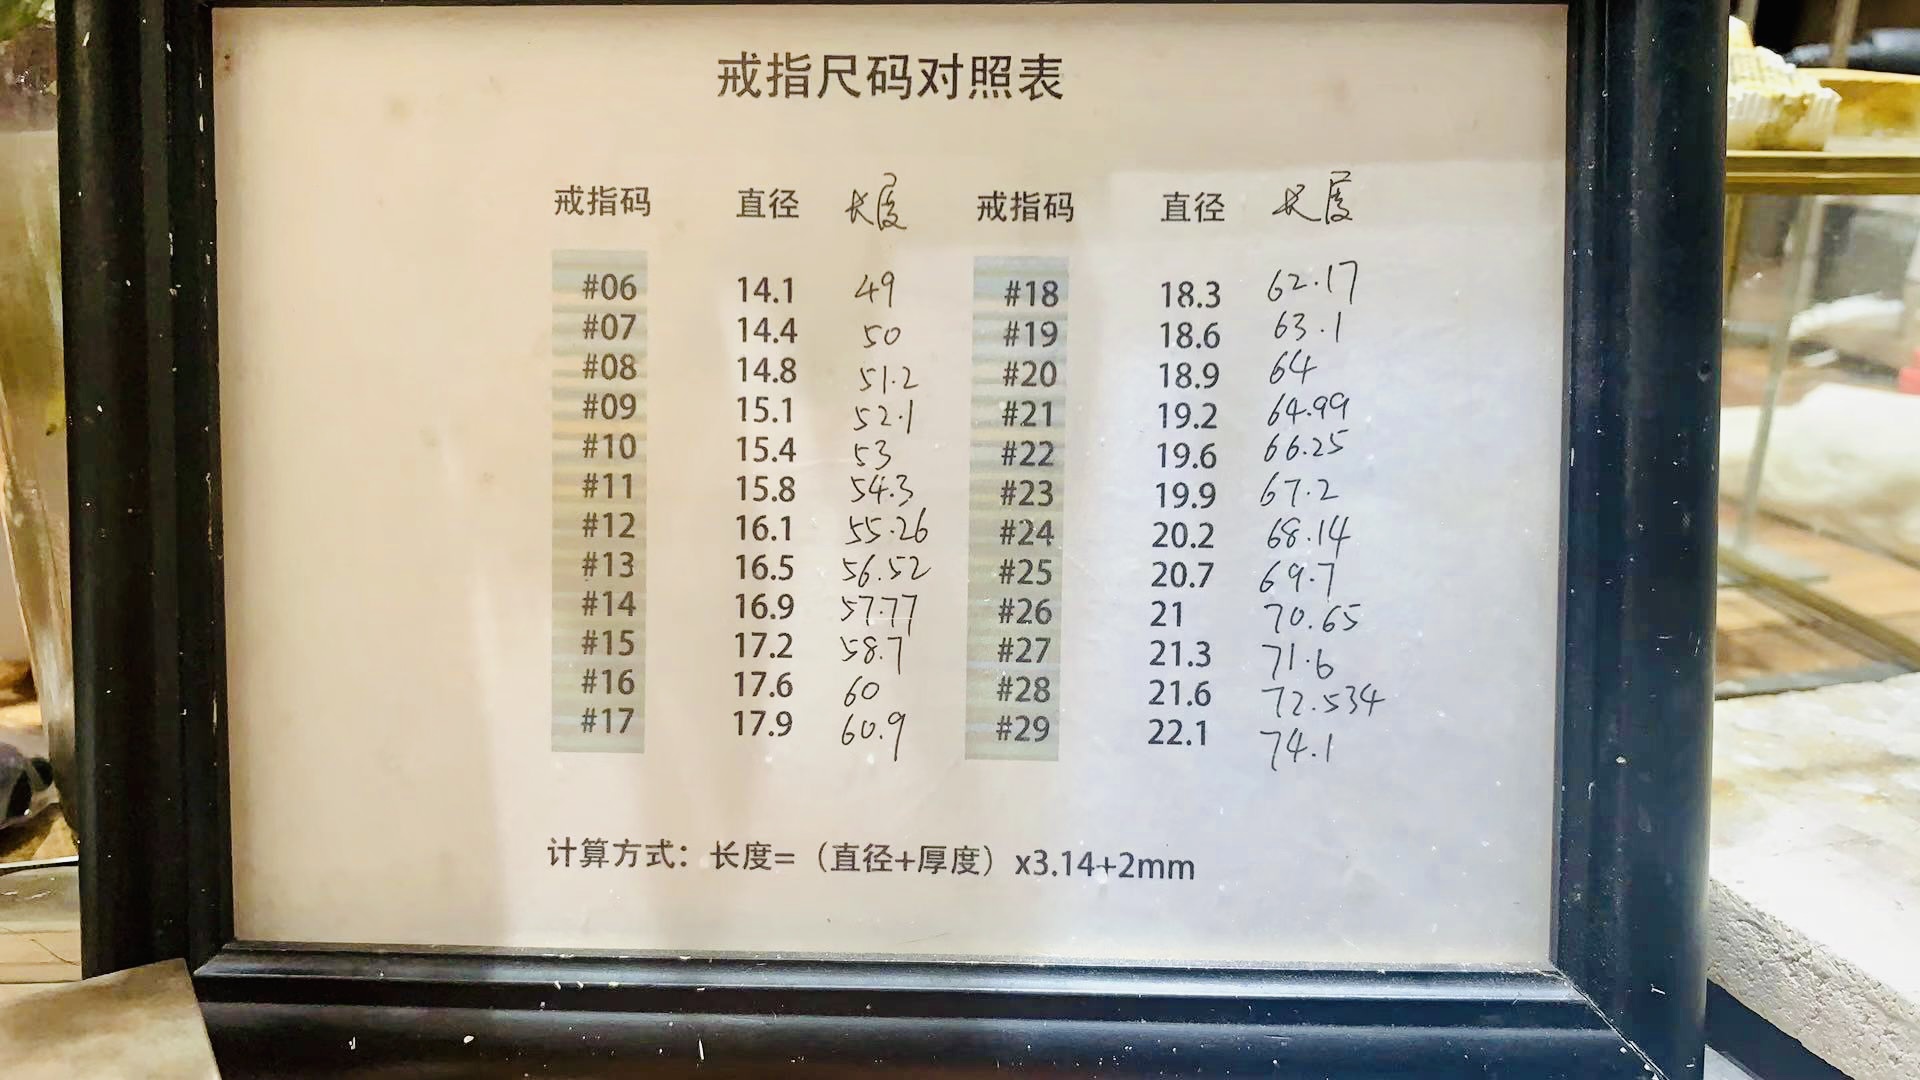 戒指尺码对照表
戒指码 直径 长度 戒指码 直径 长度
#06 14.1 49 #18 18.3 62.17
#07 14.4 50 #19 18.6 63.1
#08 14.8 51.2 #20 18.9 64
#09 15.1 52.1 #21 19.2 64.99
#10 15.4 53 #22 19.6 66.25
#11 15.8 54.3 #23 19.9 67.2
#12 16.1 55.26 #24 20.2 68.14
#13 16.5 56.52 #25 20.7 69.7
#14 16.9 57.77 #26 21 70.65
#15 17.2 58.7 #27 21.3 71.6
#16 17.6 60 #28 21.6 72.534
#17 17.9 60.9 #29 22.1 74.1
计算方式：长度=（直径+厚度）x3.14+2mm